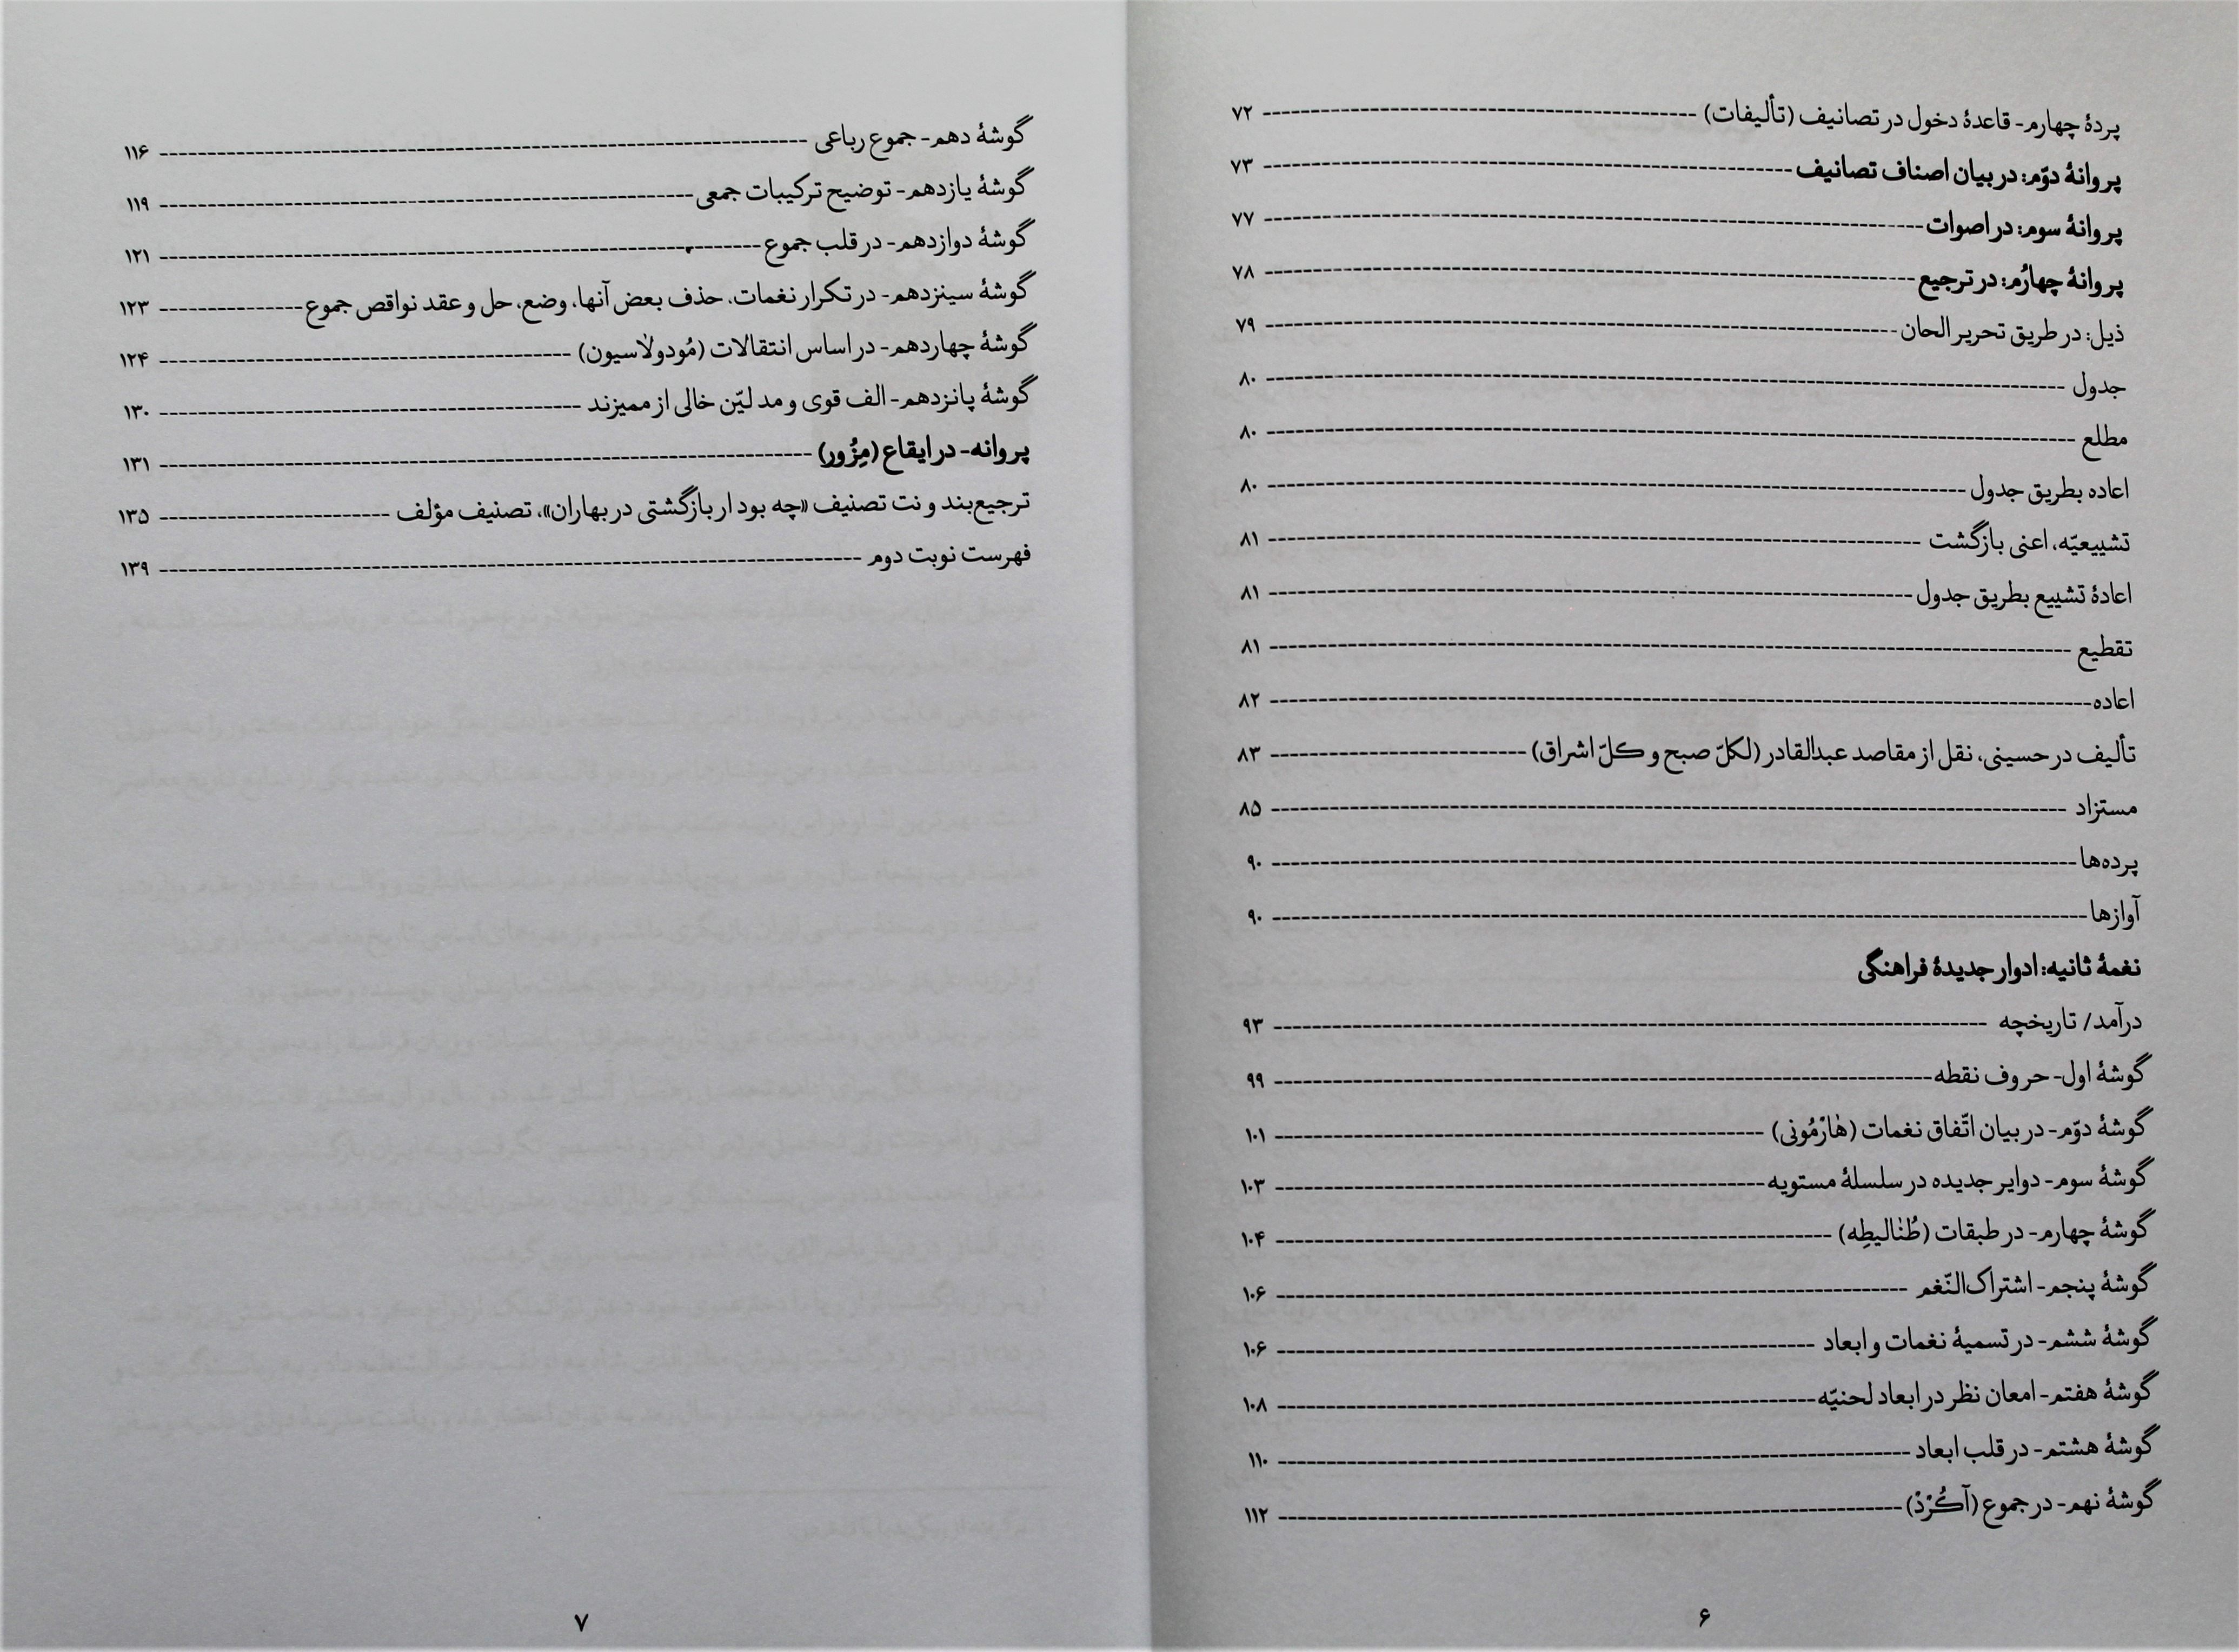 پردهٔ چهارم- قاعدهٔ دخول در تصانیف (تألیفات) ---------- ۷۲
پروانهٔ دوّم: در بیان اصناف تصانیف ---------- ۷۳
پروانهٔ سوم: در اصوات ---------- ۷۷
پروانهٔ چهارُم: در ترجیع ---------- ۷۸
ذیل: در طریق تحریر الحان ---------- ۷۹
جدول ---------- ۸۰
مطلع ---------- ۸۰
اعاده بطریق جدول ---------- ۸۰
تشییعیّه، اعنی بازگشت ---------- ۸۱
اعادهٔ تشییع بطریق جدول ---------- ۸۱
تقطیع ---------- ۸۱
اعاده ---------- ۸۲
تألیف در حسینی، نقل از مقاصد عبدالقادر (لکلّ صبح و کلّ اشراق) ---------- ۸۳
مستزاد ---------- ۸۵
پرده‌ها ---------- ۹۰
آوازها ---------- ۹۰
نغمهٔ ثانیه: ادوار جدیدهٔ فراهنگی
درآمد/ تاریخچه ---------- ۹۳
گوشهٔ اول- حروف نقطه ---------- ۹۹
گوشهٔ دوّم- در بیان اتّفاق نغمات (هٰارْمُونی) ---------- ۱۰۱
گوشهٔ سوم- دوایر جدیده در سلسلهٔ مستویه ---------- ۱۰۳
گوشهٔ چهارم- در طبقات (طُنٰالیطِه) ---------- ۱۰۴
گوشهٔ پنجم- اشتراک‌النّغم ---------- ۱۰۶
گوشهٔ ششم- در تسمیهٔ نغمات و ابعاد ---------- ۱۰۶
گوشهٔ هفتم- امعان نظر در ابعاد لحنیّه ---------- ۱۰۸
گوشهٔ هشتم- در قلب ابعاد ---------- ۱۱۰
گوشهٔ نهم- در جموع (آکُرْدْ) ---------- ۱۱۲
۶
گوشهٔ دهم- جموع رباعی ---------- ۱۱۶
گوشهٔ یازدهم- توضیح ترکیبات جمعی ---------- ۱۱۹
گوشهٔ دوازدهم- در قلب جموع ---------- ۱۲۱
گوشهٔ سینزدهم- در تکرار نغمات، حذف بعض آنها، وضع، حل و عقد نواقص جموع ---------- ۱۲۳
گوشهٔ چهاردهم- در اساس انتقالات (مُودولٰاسیون) ---------- ۱۲۴
گوشهٔ پانزدهم- الف قوی و مد لیّن خالی از ممیزند ---------- ۱۳۰
پروانه- در ایقاع (مِزُور) ---------- ۱۳۱
ترجیع‌بند و نت تصنیف «چه بود ار بازگشتی در بهاران»، تصنیف مؤلف ---------- ۱۳۵
فهرست نوبت دوم ---------- ۱۳۹
۷